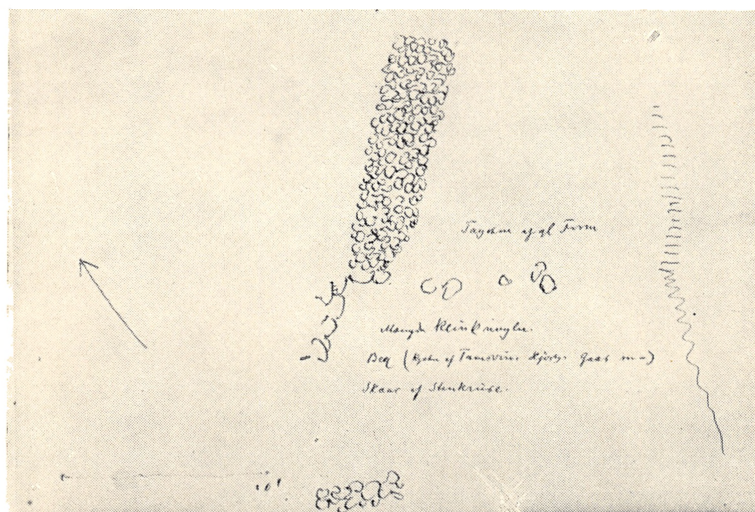 Tagsten af gl Form
Mængde Klinknagler.
Ben ( af Tamsvin Hjort Gaas m–)
Skaar af Stenkrukke.
10'